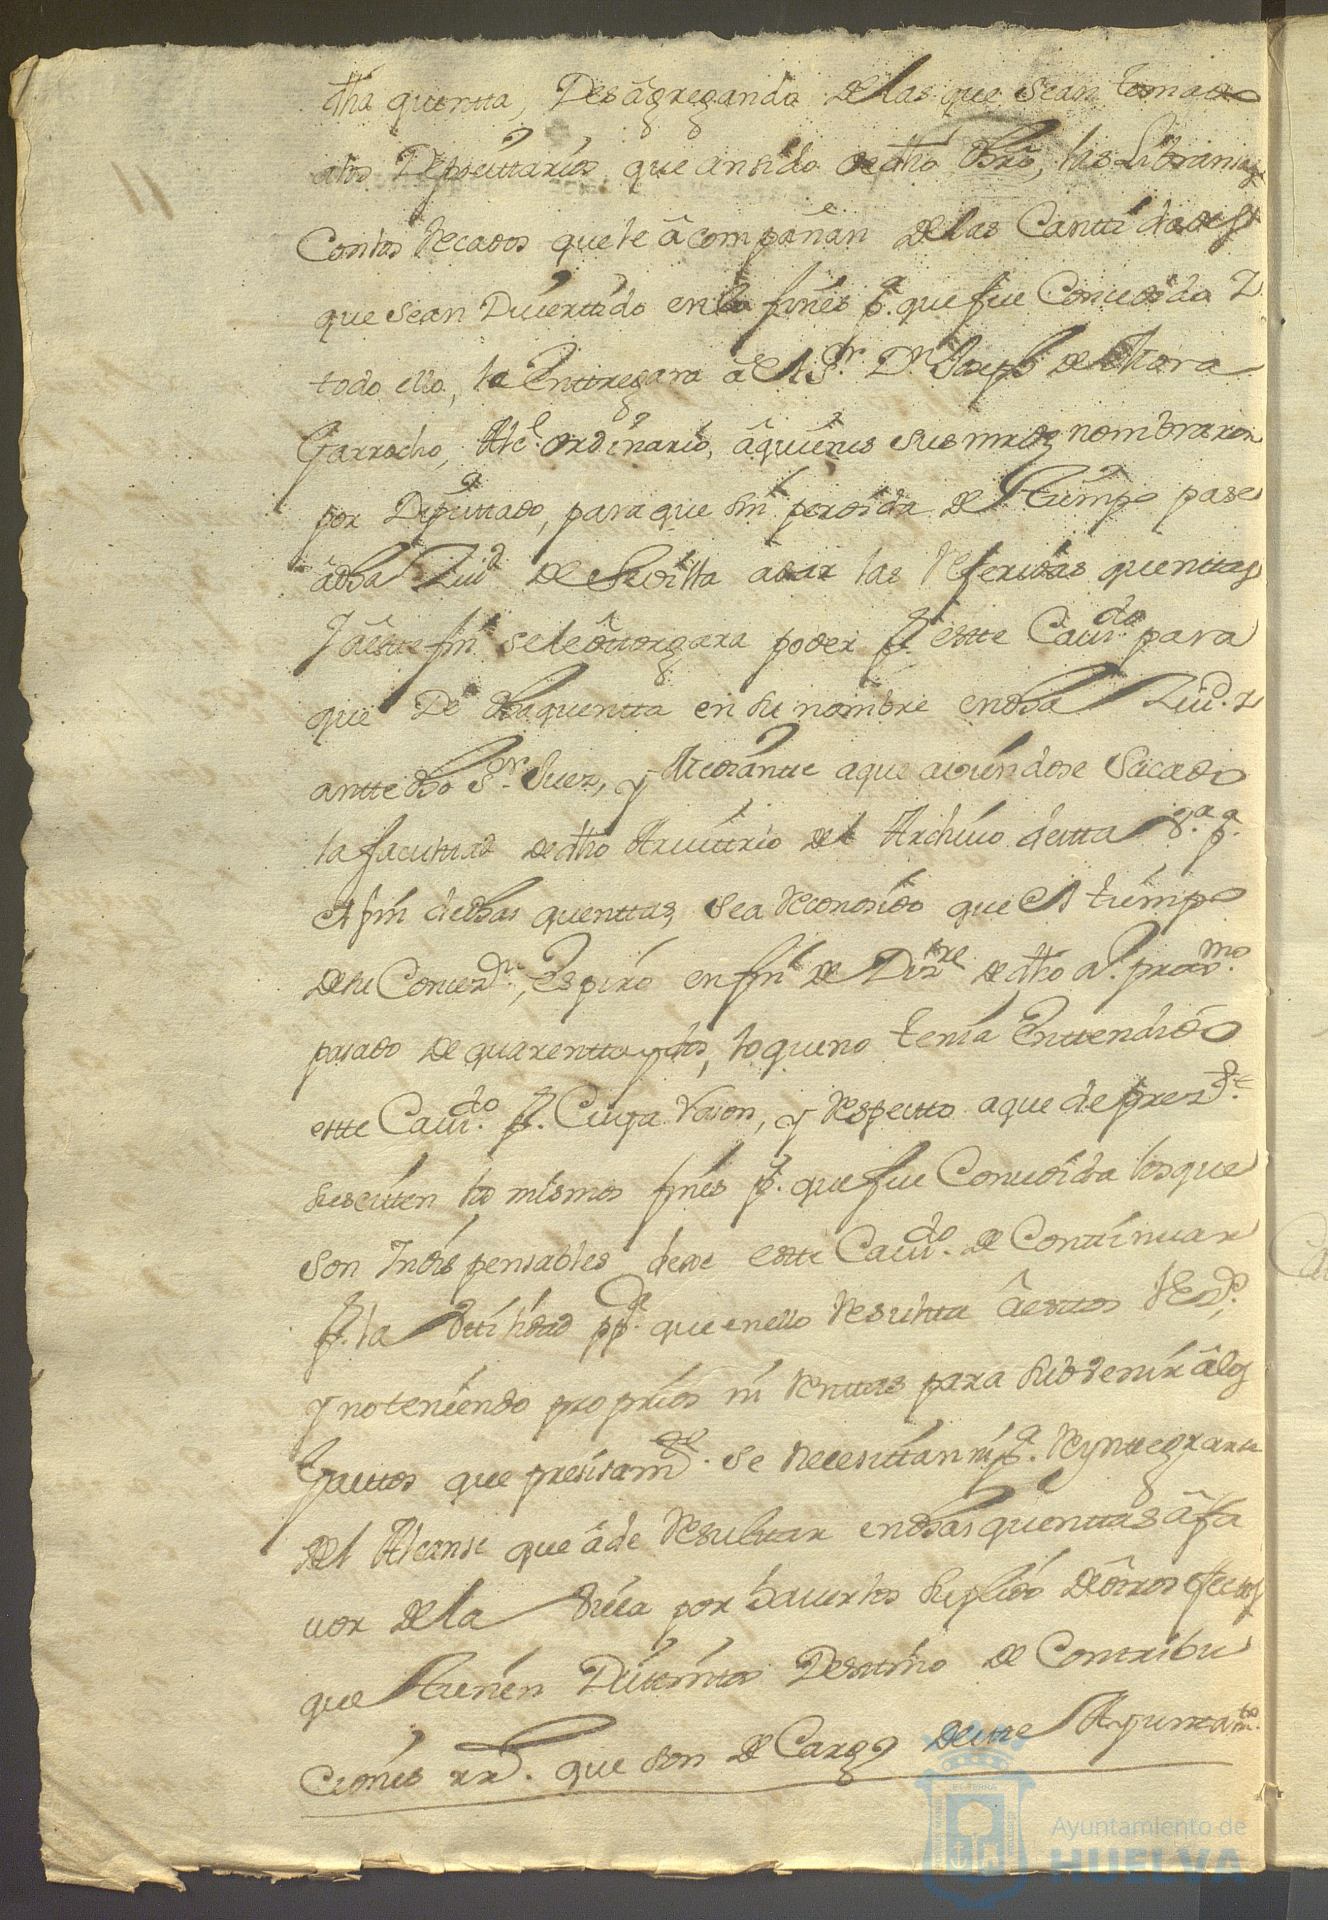 dha quentta, Desagregando de las que sean tomado
alos Deposittarios que an sido de dho Advro, los Libramtos
Con los Recados que le acompañan de las Canttidades
que sean Divertido en los fines pa. que fue Concedido Y
todo ello, lo Enttregara a el Sr. Dn. Joseph de Mora
Garrocho, Alce. ordinario, aquienes sus mrds nombraron
por Diputtado, para que sin perdida de tiempo pase
a dha Ziud de Sevilla adar las Referidas quenttas
Y a este fin se le ottorgara poder pr. estte Cavdo. para
que De dha quentta en su nombre en dha Ziud. y
antte dho Sr. Juez, y Mediantte a que aviendose Sacado
la facultad de dho Arvittrio del Archivo de esta Va. pa.
el fin de dhas quenttas, sea Reconosido que el tiempo
de su Concezn., espiro en fin de Dizre de dho aº. proxmo.
pasado de quarentta y dos, lo que no tenia Enttendido
estte Cavdo. pr. Cuya Rason, y Respecto a que de presste.
subsisten los mismos fines pa. que fue Concedida los que
son Indispensables deve estte Cavdo. de Conttinuar
pr. la Utilidad ppca. que en ello Resultta a esttos Vezos.
y no teniendo proprios ni Renttas para subvenir a los
Gasttos que presisamte. se necesittan ni pa. Reynttegrarse
del Alcanse que a de Resulttar en dhas quenttas a fa
vor de la Villa por haverlos suplido de otros efectos
que tienen Disttinttos Desttino de Contribu
ciones rrs. que son de Cargo de este Ayuntamto.
11
Ayuntamiento de
HUELVA